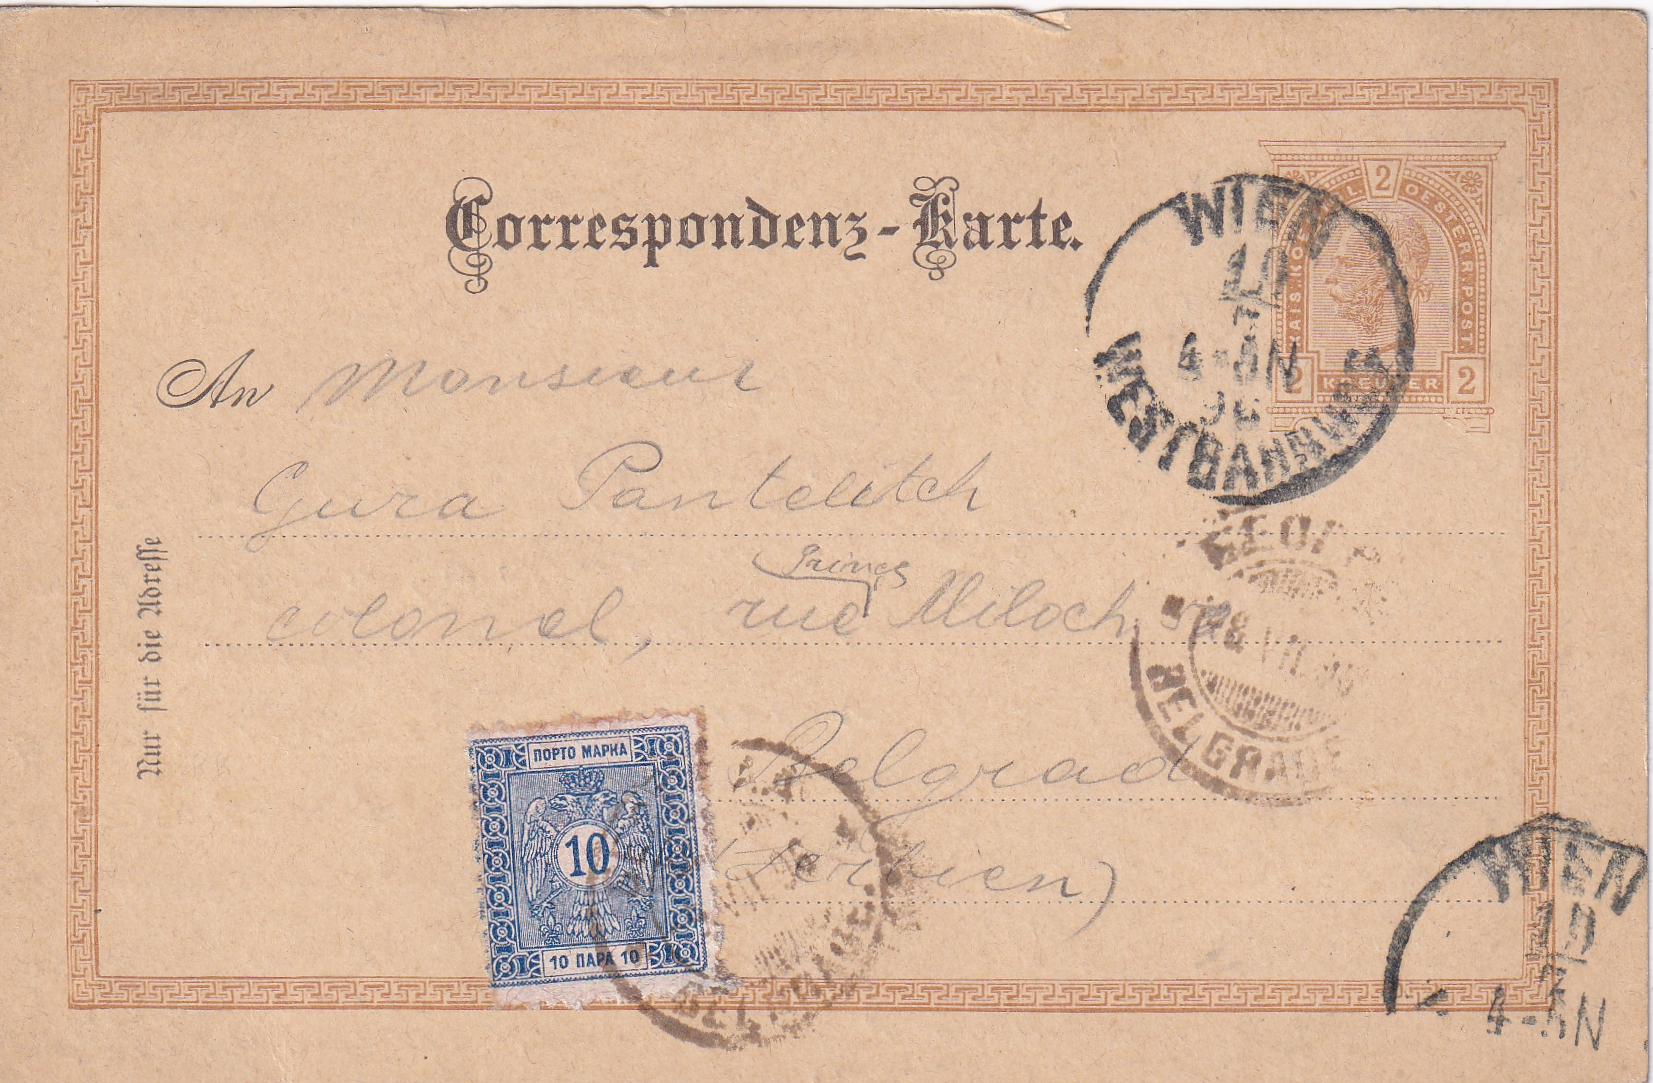 Correspondenz-Karte.
2
KAIS. KÖNIGL. OESTERR. POST
2 KREUZER 2
WIEN
10
7
4-AN
96
WESTBAHNHOF
An Monsieur
Gura Pantelitch
colonel, rue Prince Miloch
Belgrad
(Serbien)
Nur für die Adresse
VII
BELGRADE
ПОРТО МАРКА
10
10 ПАРА 10
VII
BELGRADE
WIEN
10
7
4-AN